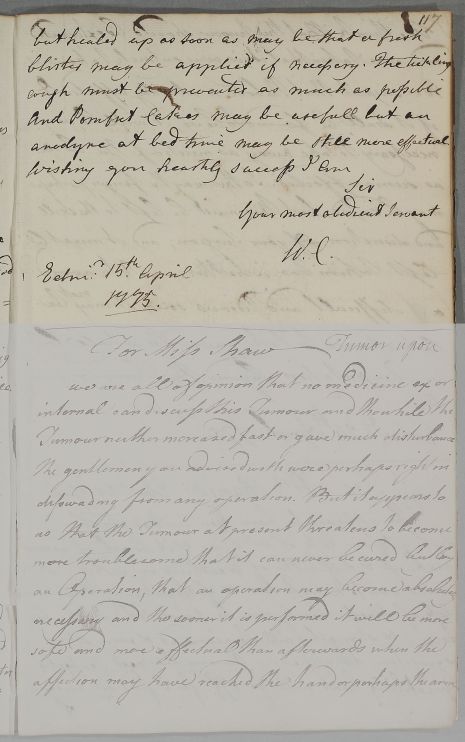 117
but healed up as soon as may be that a fresh
blister may be applied if necessary. The tickling
cough must be prevented as much as possible
And Pomfret Cakes may be usefull but an
anodyne at bed time may be still more effectual
Wishing you heartly success I am
Sir
Your most obedient Servant
W. C.
Edinr. 15th April
1775.
For Miss Shaw Tumor upon
we are all of opinion that no medicine ex or
internal can discuss this Tumour and tho while the
Tumour neither increased fast or gave much disturbance
the gentlemen you advised with were perhaps right in
disswading from any operation. But it appears to
us that the Tumour at present threatens to become
more troublesome that it can never be cured but by
an Operation, that an operation may become absolutely
necessary and the sooner it is performed it will be more
safe and more effectual than afterwards when the
affection may have reached the hand or perhaps the arm